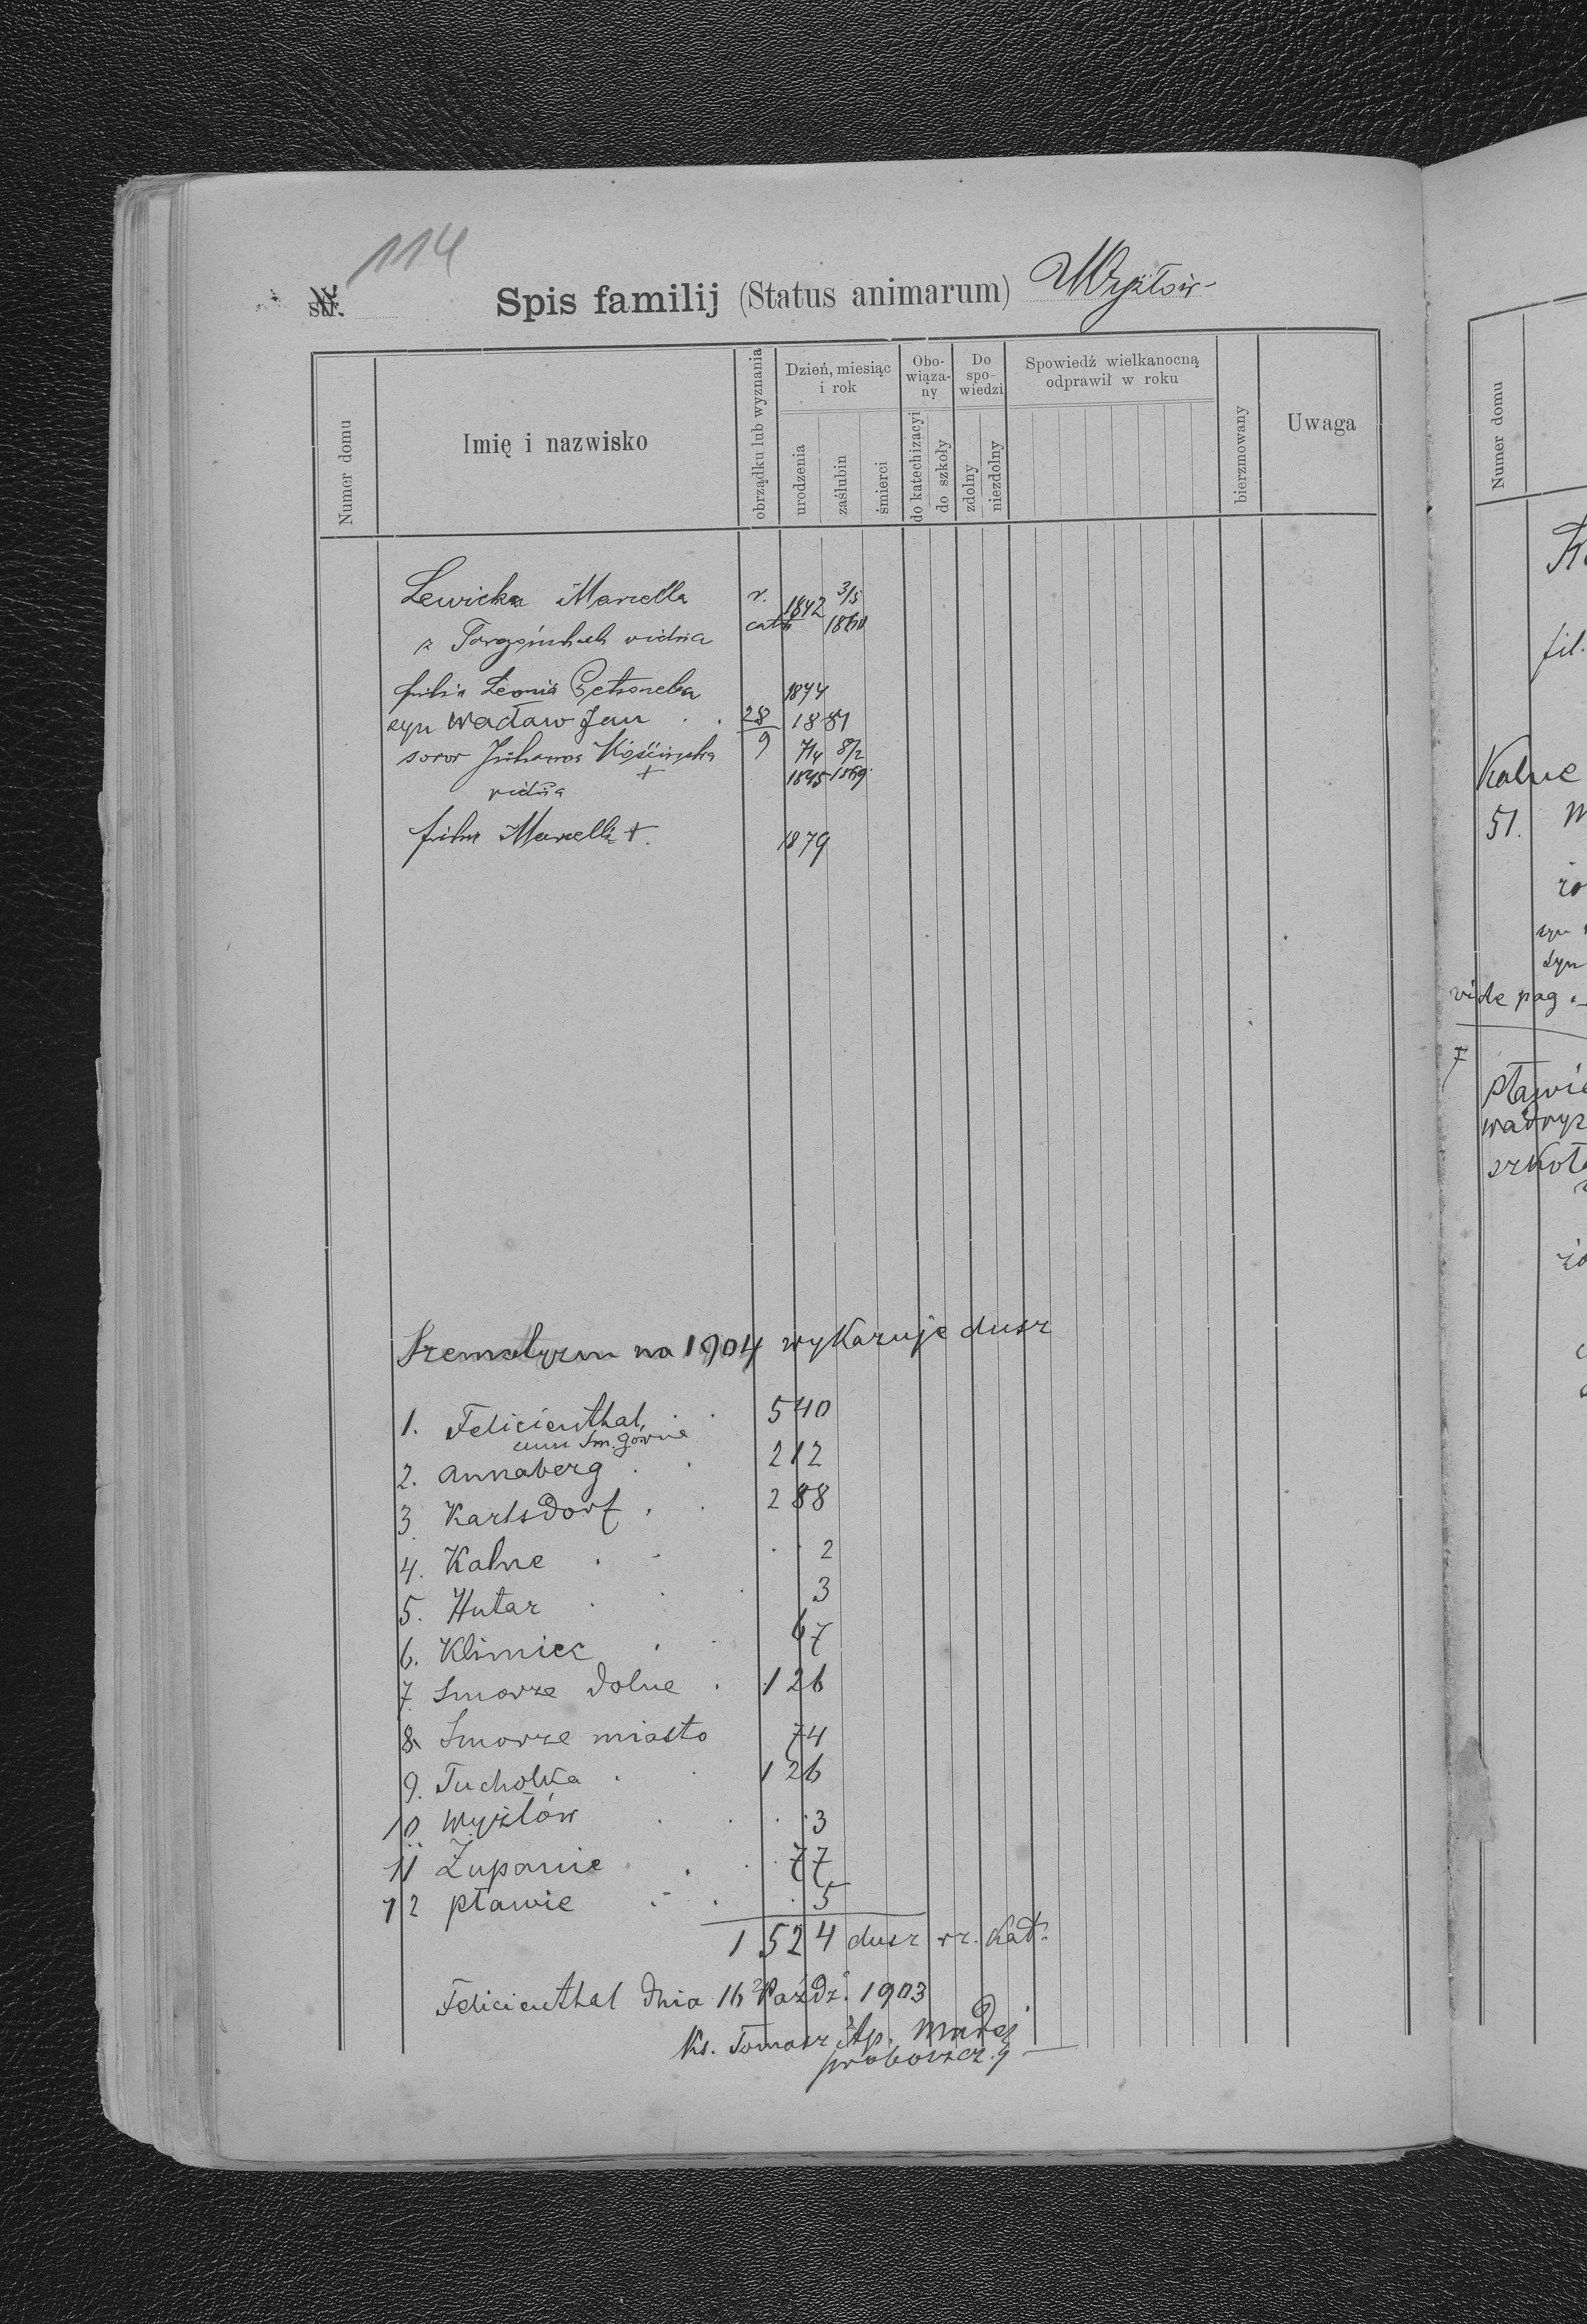 114
Spis familij (Status animarum) Wyżłów
Numer domu
Imię i nazwisko
obrządku lub wyznania
Dzień, miesiąc i rok
urodzenia
zaślubin
śmierci
Obowiązany
do katechizacyi
do szkoły
Do spowiedzi
zdolny
niezdolny
Spowiedź wielkanocną odprawił w roku
bierzmowany
Uwaga
Lewicka Marcella r. cath 1842 3/5
vidua
filia Leonia 1844
syn Wacław Jan 28/9 1881
soror 7/4 1845 8/2 1869
vidua
filia Marcella + 1879
Szematyzm na 1904 wykazuje dusz
1. Felicienthal 540
cum Sm. górne
2. Annaberg 212
3 Karlsdorf 288
4. Kalne 2
5. Hutar 3
6. Klimiec 67
7 Smorze dolne 126
8 Smorze miasto 74
9. Tucholka 126
10 Wyżłów 3
11 Żupanie 77
12 Pławie 5
1524 dusz rz. kat.
Felicienthal dnia 16 Paźdz. 1903
Ks. Tomasz Ap. Madej
proboszcz
Numer domu
fil.
Kalne
51.
żo
syn
syn
vide pag.
7
Pławie